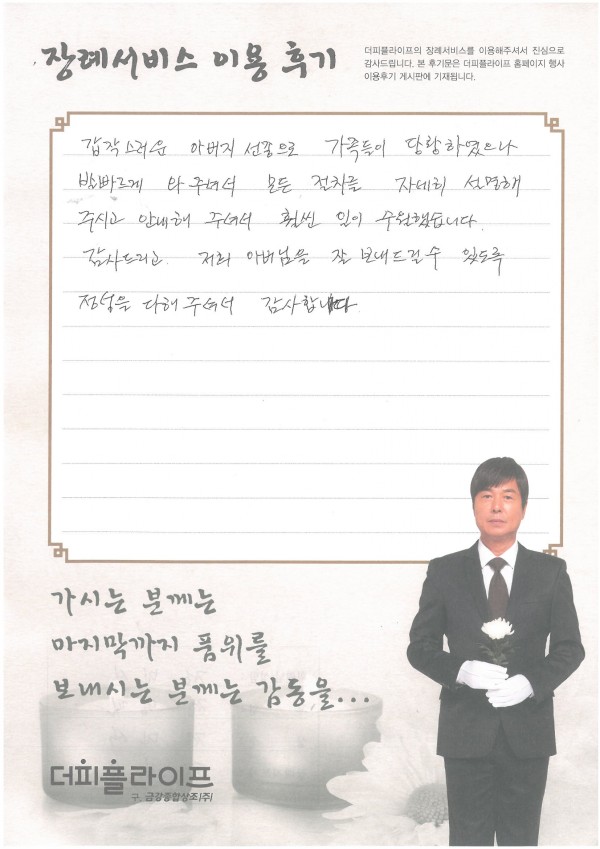 장례서비스 이용 후기
더피플라이프의 장례서비스를 이용해주셔서 진심으로
감사드립니다. 본 후기문은 더피플라이프 홈페이지 행사
이용후기 게시판에 기재됩니다.
갑작스러운 아버지 선종으로 가족들이 당황하였으나
발빠르게 와주셔서 모든 절차를 자세히 설명해
주시고 안내해 주셔서 훨씬 일이 수월했습니다.
감사드리고 저희 아버님을 잘 보내드릴수 있도록
정성을 다해주셔서 감사합니다
가시는 분께는
마지막까지 품위를
보내시는 분께는 감동을...
더피플라이프
구. 금강종합상조(주)